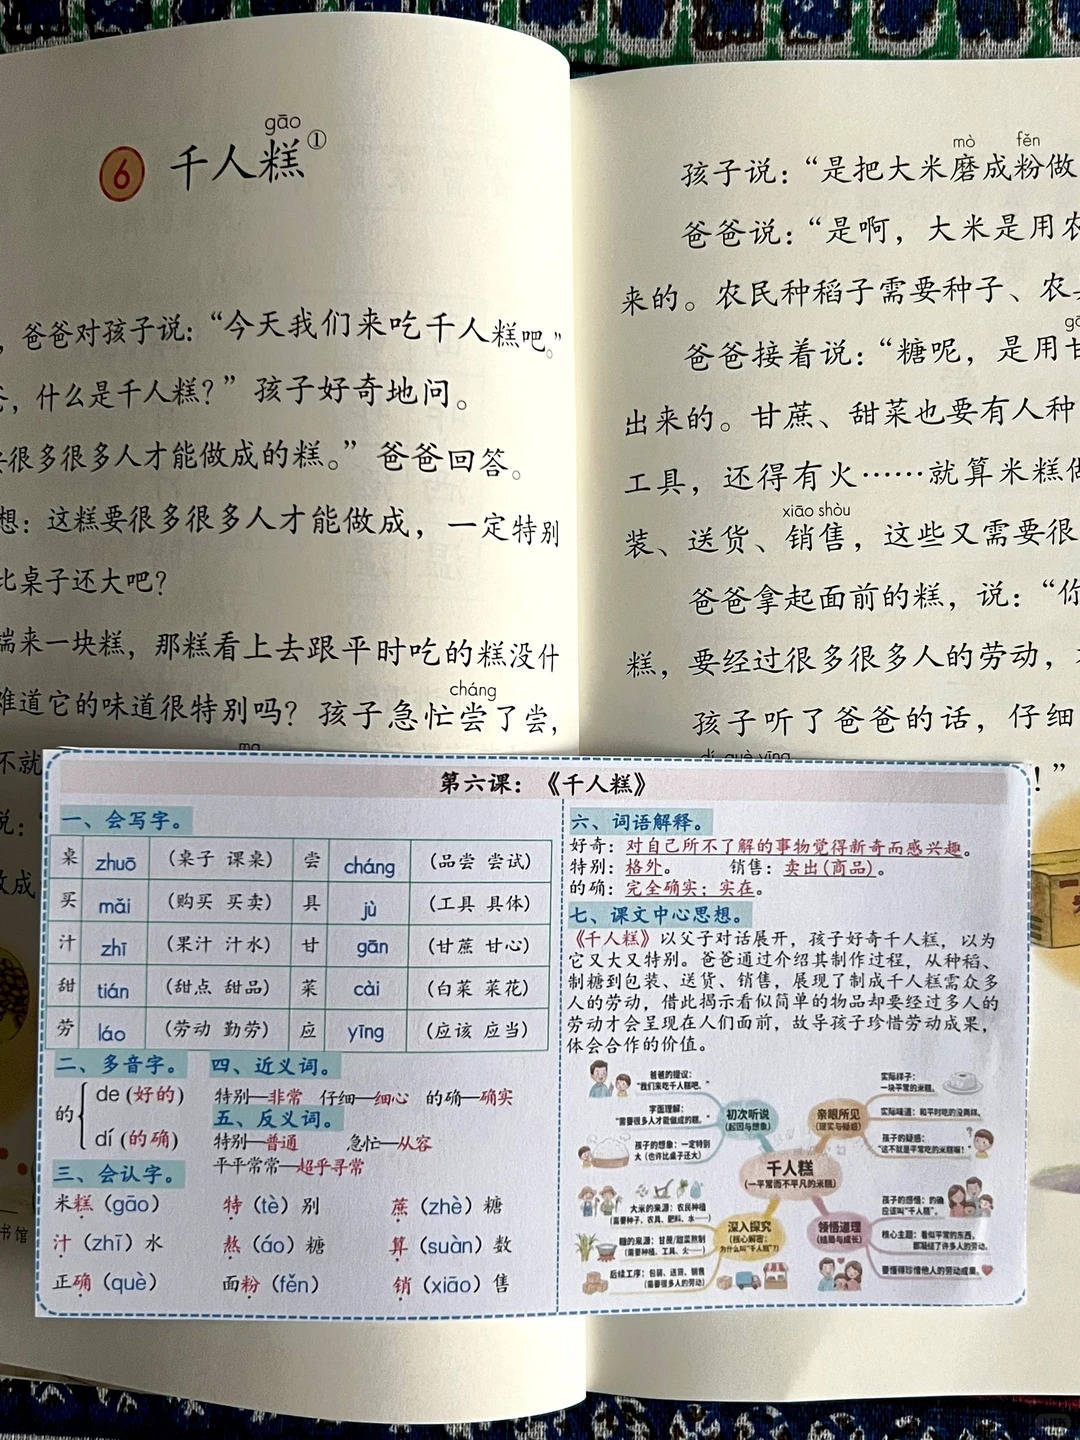 gāo
6 千人糕①
，爸爸对孩子说：“今天我们来吃千人糕吧。”
，什么是千人糕？”孩子好奇地问。
很多很多人才能做成的糕。”爸爸回答。
想：这糕要很多很多人才能做成，一定特别
比桌子还大吧？
端来一块糕，那糕看上去跟平时吃的糕没什
难道它的味道很特别吗？孩子急忙尝了尝，
cháng
不就
说：“
做成
书馆
mò fěn
孩子说：“是把大米磨成粉做
爸爸说：“是啊，大米是用农
来的。农民种稻子需要种子、农
爸爸接着说：“糖呢，是用甘
出来的。甘蔗、甜菜也要有人种
工具，还得有火……就算米糕做
xiāo shòu
装、送货、销售，这些又需要很
爸爸拿起面前的糕，说：“你
糕，要经过很多很多人的劳动，
孩子听了爸爸的话，仔细
dí què yīng
！”
第六课：《千人糕》
一、会写字。
桌 zhuō （桌子 课桌） 尝 cháng （品尝 尝试）
买 mǎi （购买 买卖） 具 jù （工具 具体）
汁 zhī （果汁 汁水） 甘 gān （甘蔗 甘心）
甜 tián （甜点 甜品） 菜 cài （白菜 菜花）
劳 láo （劳动 勤劳） 应 yīng （应该 应当）
二、多音字。
的 de（好的）
dí（的确）
三、会认字。
米糕（gāo） 特（tè）别 蔗（zhè）糖
汁（zhī）水 熬（áo）糖 算（suàn）数
正确（què） 面粉（fěn） 销（xiāo）售
四、近义词。
特别—非常 仔细—细心 的确—确实
五、反义词。
特别—普通 急忙—从容
平平常常—超乎寻常
六、词语解释。
好奇：对自己所不了解的事物觉得新奇而感兴趣。
特别：格外。 销售：卖出(商品)。
的确：完全确实；实在。
七、课文中心思想。
《千人糕》以父子对话展开，孩子好奇千人糕，以为
它又大又特别。爸爸通过介绍其制作过程，从种稻、
制糖到包装、送货、销售，展现了制成千人糕需众多
人的劳动，借此揭示看似简单的物品却要经过多人的
劳动才会呈现在人们面前，故导孩子珍惜劳动成果，
体会合作的价值。
千人糕
(一平常而不平凡的米糕)
初次听说
(起因与想象)
爸爸的提议：
“我们来吃千人糕吧。”
字面理解：
“需要很多人才能做成的糕。”
孩子的想象：一定特别
大（也许比桌子还大）
亲眼所见
(现实与疑惑)
实际样子：
一块平常的米糕。
实际味道：和平时吃的没两样。
孩子的疑惑：
“这不就是平常吃的米糕嘛！”
深入探究
(核心解密：
为什么叫“千人糕”？)
大米的来源：农民种稻
(需要种子、农具、肥料、水……)
糖的来源：甘蔗/甜菜熬制
(需要种植、工具、火……)
后续工序：包装、送货、销售
(需要很多人的劳动)
领悟道理
(结局与成长)
孩子的感悟：的确
应该叫“千人糕”。
核心主题：看似平常的东西，
都凝结了许多人的劳动。
要懂得珍惜他人的劳动成果。